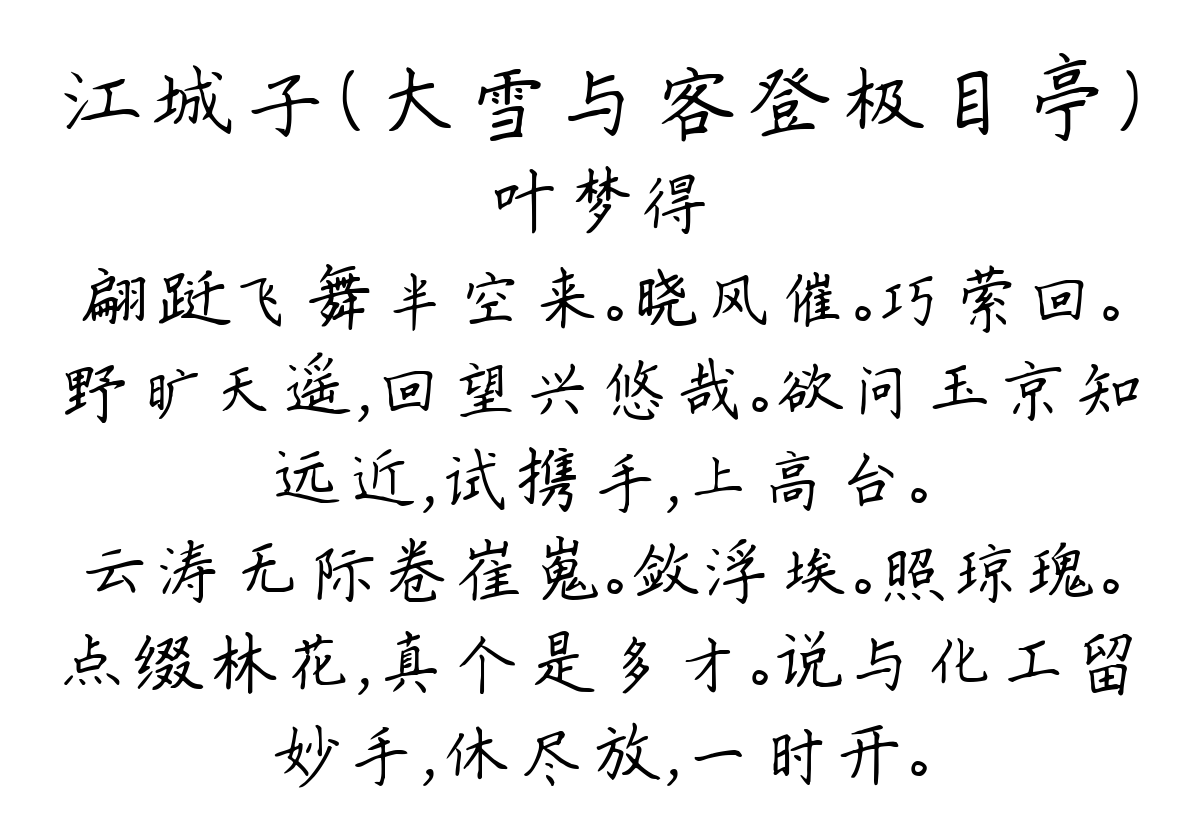 江城子(大雪与客登极目亭)
叶梦得
翩跹飞舞半空来。晓风催。巧萦回。
野旷天遥,回望兴悠哉。欲问玉京知
远近,试携手,上高台。
云涛无际卷崔嵬。敛浮埃。照琼瑰。
点缀林花,真个是多才。说与化工留
妙手,休尽放,一时开。